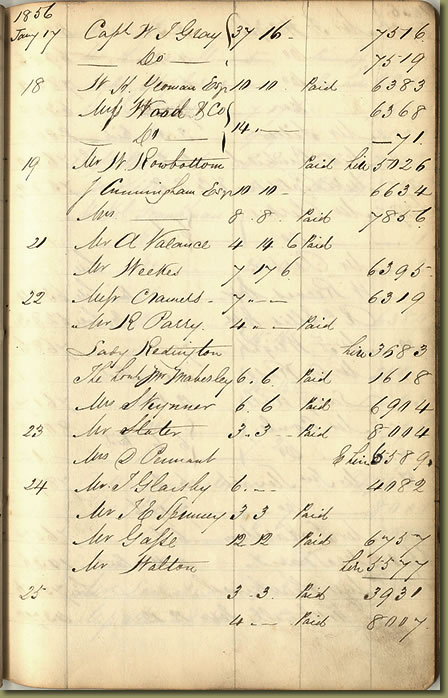 1856
Jany 17 Capt W T Gray 37 16 - 7516
Do 7519
18 W H Yeoman Esq 10 10 - Paid 6383
Messrs Wood & Co 6368
Do 14 - - 71
19 Mr W. Rowbottom Paid hire 5026
J Cunningham Esq 10 10 - 6634
Mrs 8 . 8 . Paid 7856
21 Mr A Valance 4 14 6 Paid
Mr Weekes 7 17 6 6395
22 Messrs Cramers - 7 - - 6319
Mr R Parry. 4 - - Paid
Lady Redington hire 3583
The Honble Mr 6 . 6 . Paid 1618
Mrs Skynner 6 . 6 Paid 6904
23 Mr Slater 3 . 3 - Paid 8004
Mrs D Pennant E hire 5589
24 Mr J 6 . - - 4082
Mr J E 3 . 3 Paid
Mr Gasse 12 12 Paid 6757
Mr Walton hire 5577
25 3 . 3 . Paid 3931
4 - - Paid 8007